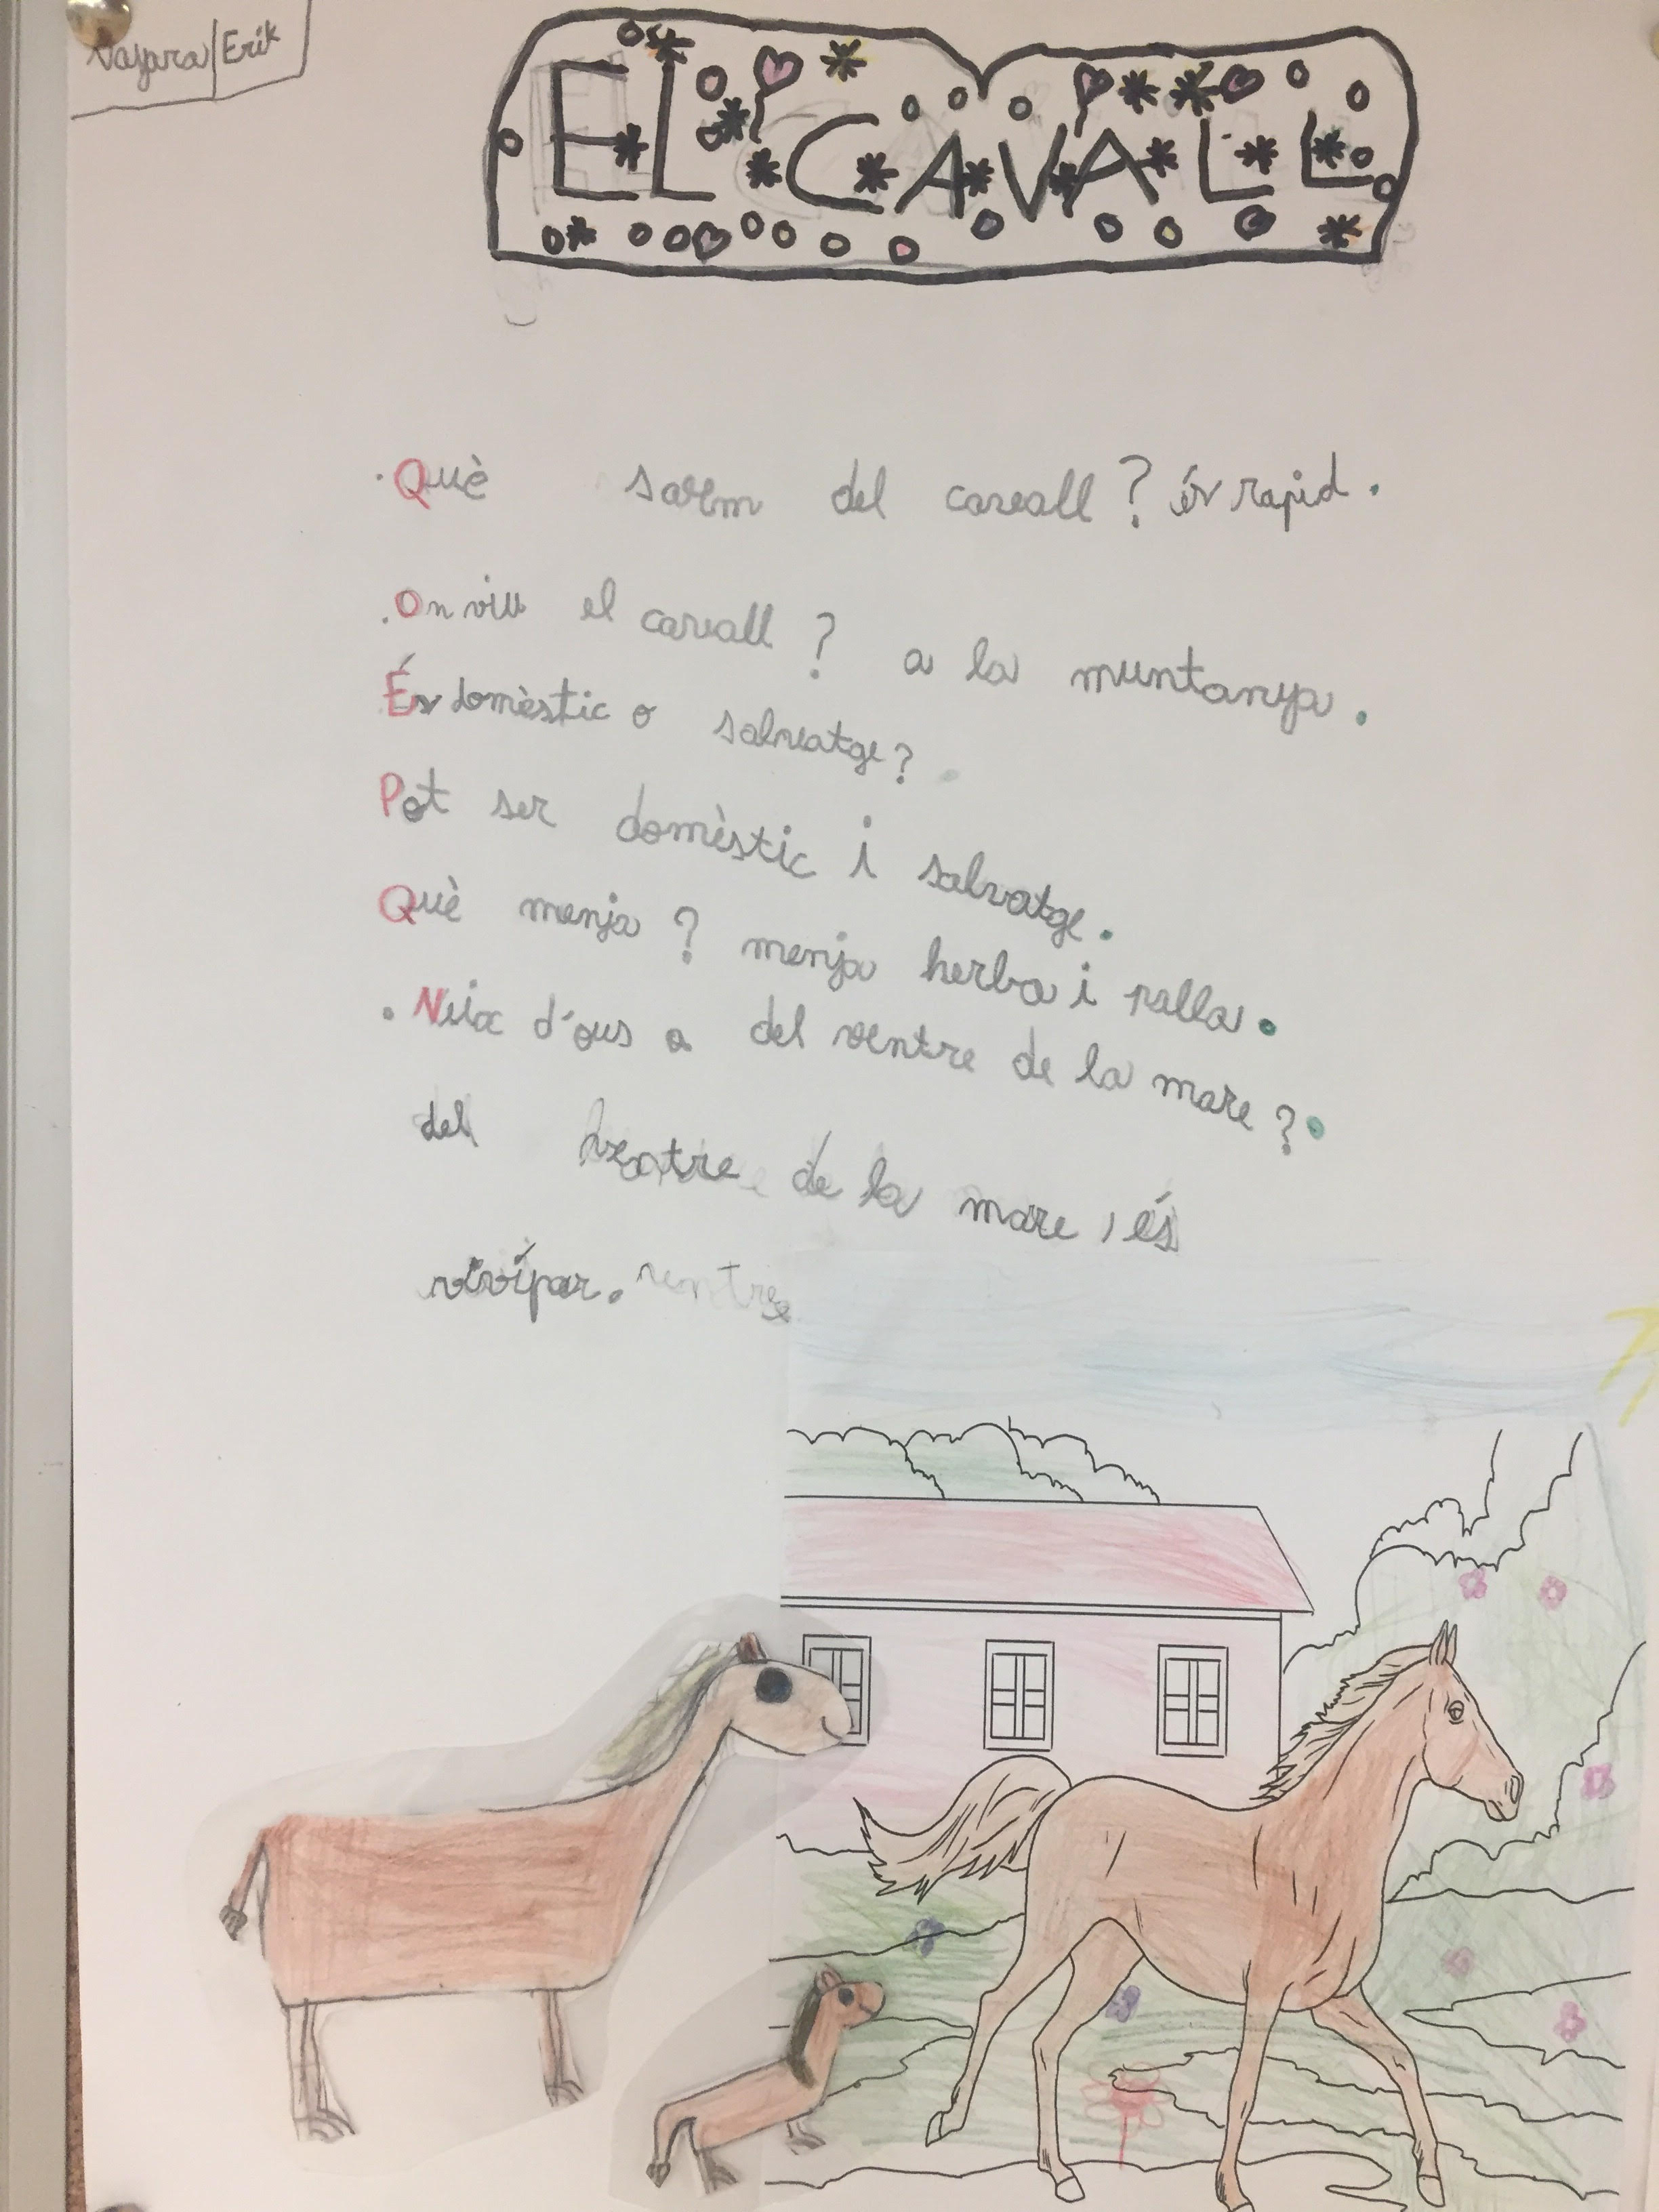 Nayara | Erik
EL CAVALL
· Què sabem del cavall? és rapid.
. On viu el cavall? a la muntanya.
És domèstic o salvatge?
Pot ser domèstic i salvatge.
Què menja? menja herba i palla.
. Neix d'ous o del ventre de la mare?
del ventre de la mare, és
vivípar. ventre